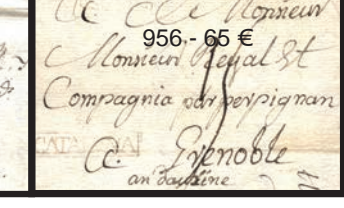 A Monsieur
956 - 65 €
Monsieur Regal et
Compagnia par perpignan
CATALUÑA
A. Grenoble
en dauxine